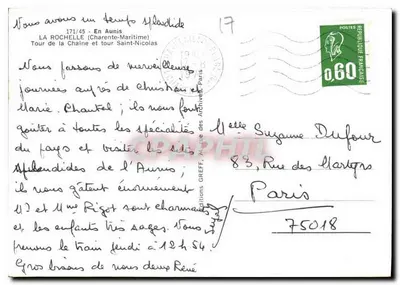 Nous avons un temps splendide
17
171/45 - En Aunis
LA ROCHELLE (Charente-Maritime)
Tour de la Chaîne et tour Saint-Nicolas
Nous passons de merveilleuses
journées auprès de Christian et
Marie. Chantal ; ils nous font
goûter à toutes les spécialités
du pays et visiter les
splendides de l'Aunis ;
ils nous gâtent énormément
M. et Mme Rigot sont charmants
et les enfants très sages. Nous
prenons le train jeudi à 12 h 54.
Gros baisers de nous deux René
Suzy
Editions GREFF, rue des Archives, Paris
POSTES
REPUBLIQUE FRANÇAISE
0,60
Melle Suzanne Dufour
83, Rue des Martyrs
Paris
75018